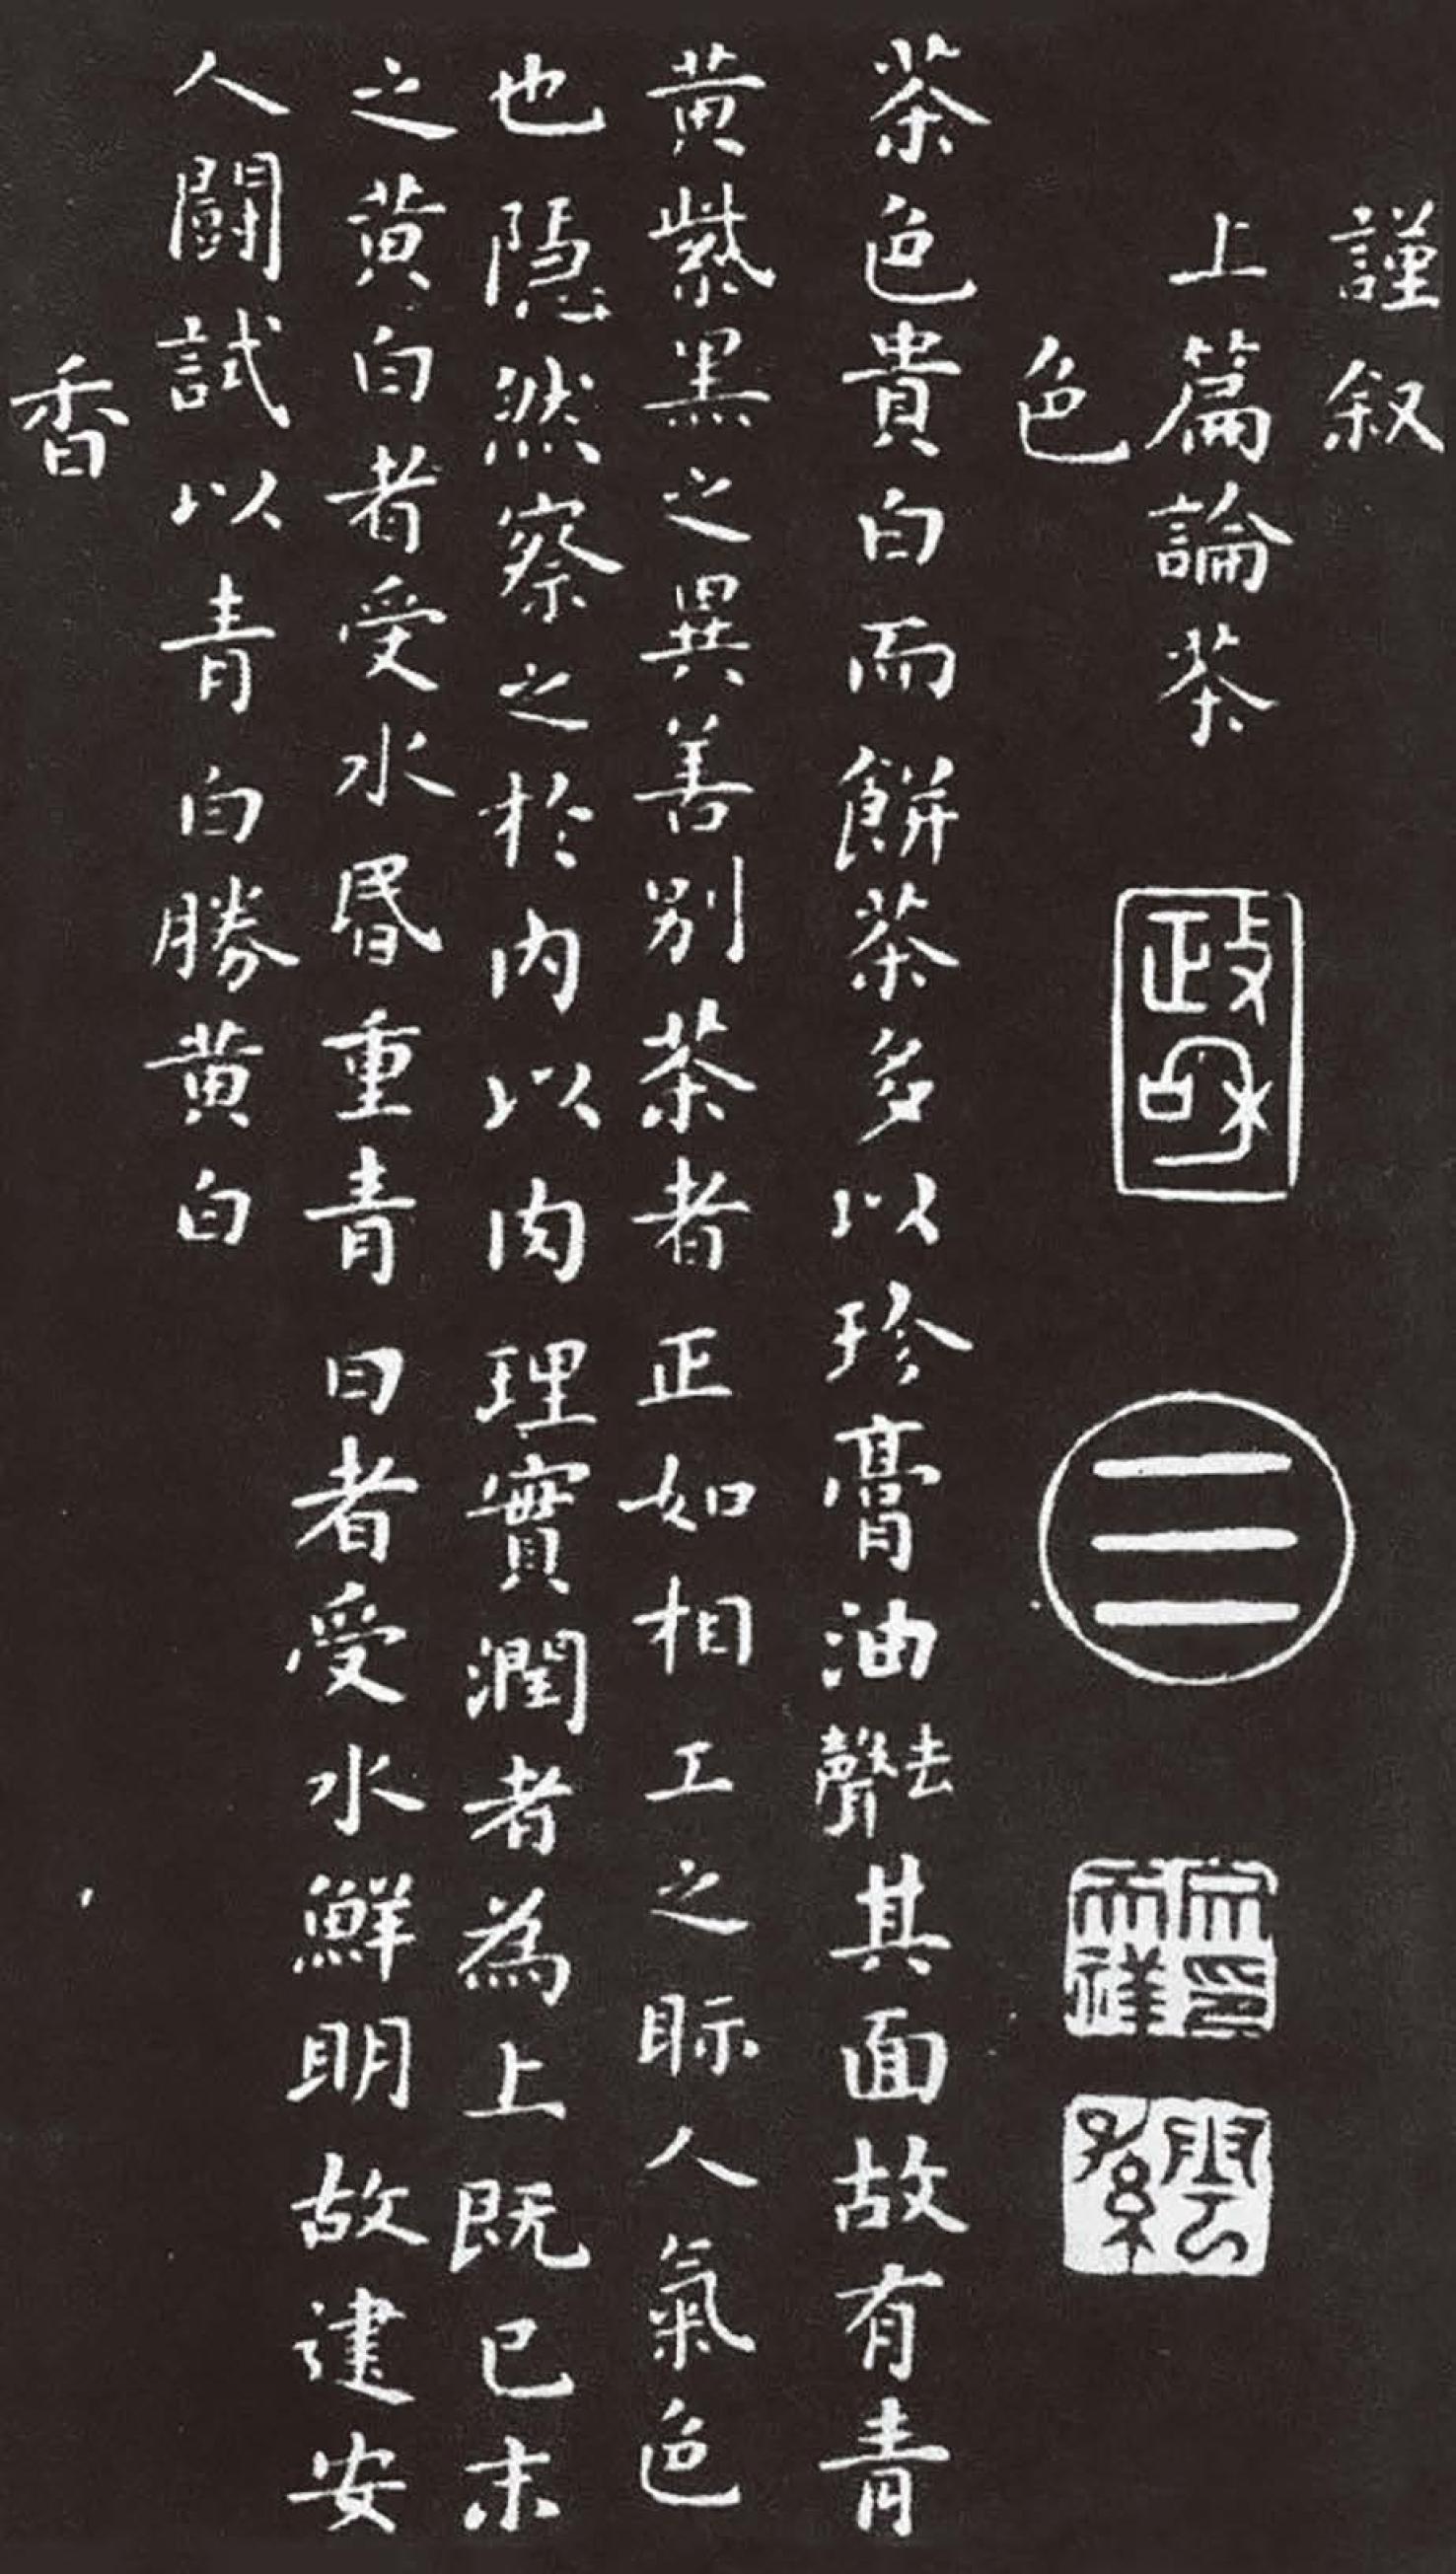 謹叙
上篇論茶
政和
色
茶色貴白而餅茶多以珍膏油去聲其面故有青
黃紫黑之異善別茶者正如相工之眎人氣色
也隱然察之於內以肉理實潤者為上既已末
之黃白者受水昬重青白者受水鮮明故建安
人鬪試以青白勝黃白
香